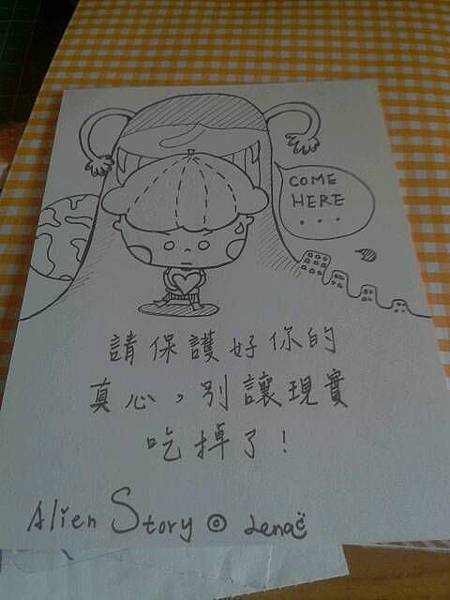 COME
HERE
...
請保護好你的
真心，別讓現實
吃掉了！
Alien Story © Lena